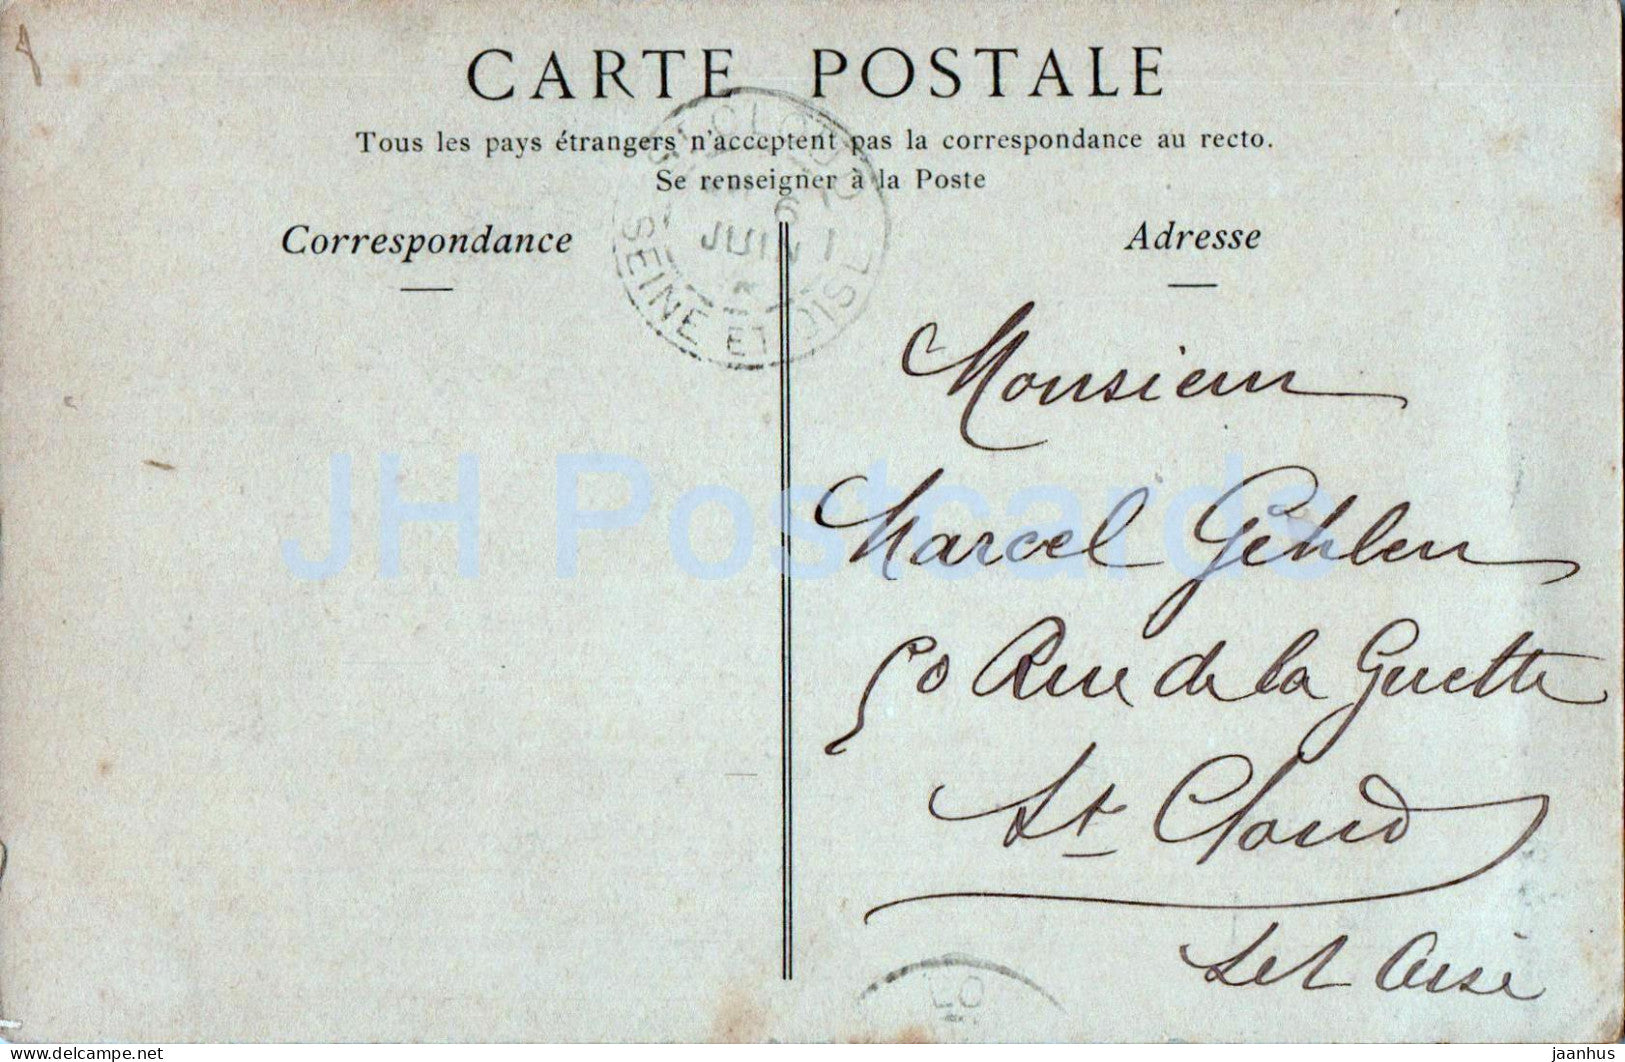 CARTE POSTALE
Tous les pays étrangers n'acceptent pas la correspondance au recto.
Se renseigner à la Poste
Correspondance
Adresse
ST CLOUD
6
JUIN
SEINE ET OISE
Monsieur
Marcel Gehlen
50 Rue de la Guette
St Cloud
S et Oise
JH Postcards
delcampe.net
jaanhus